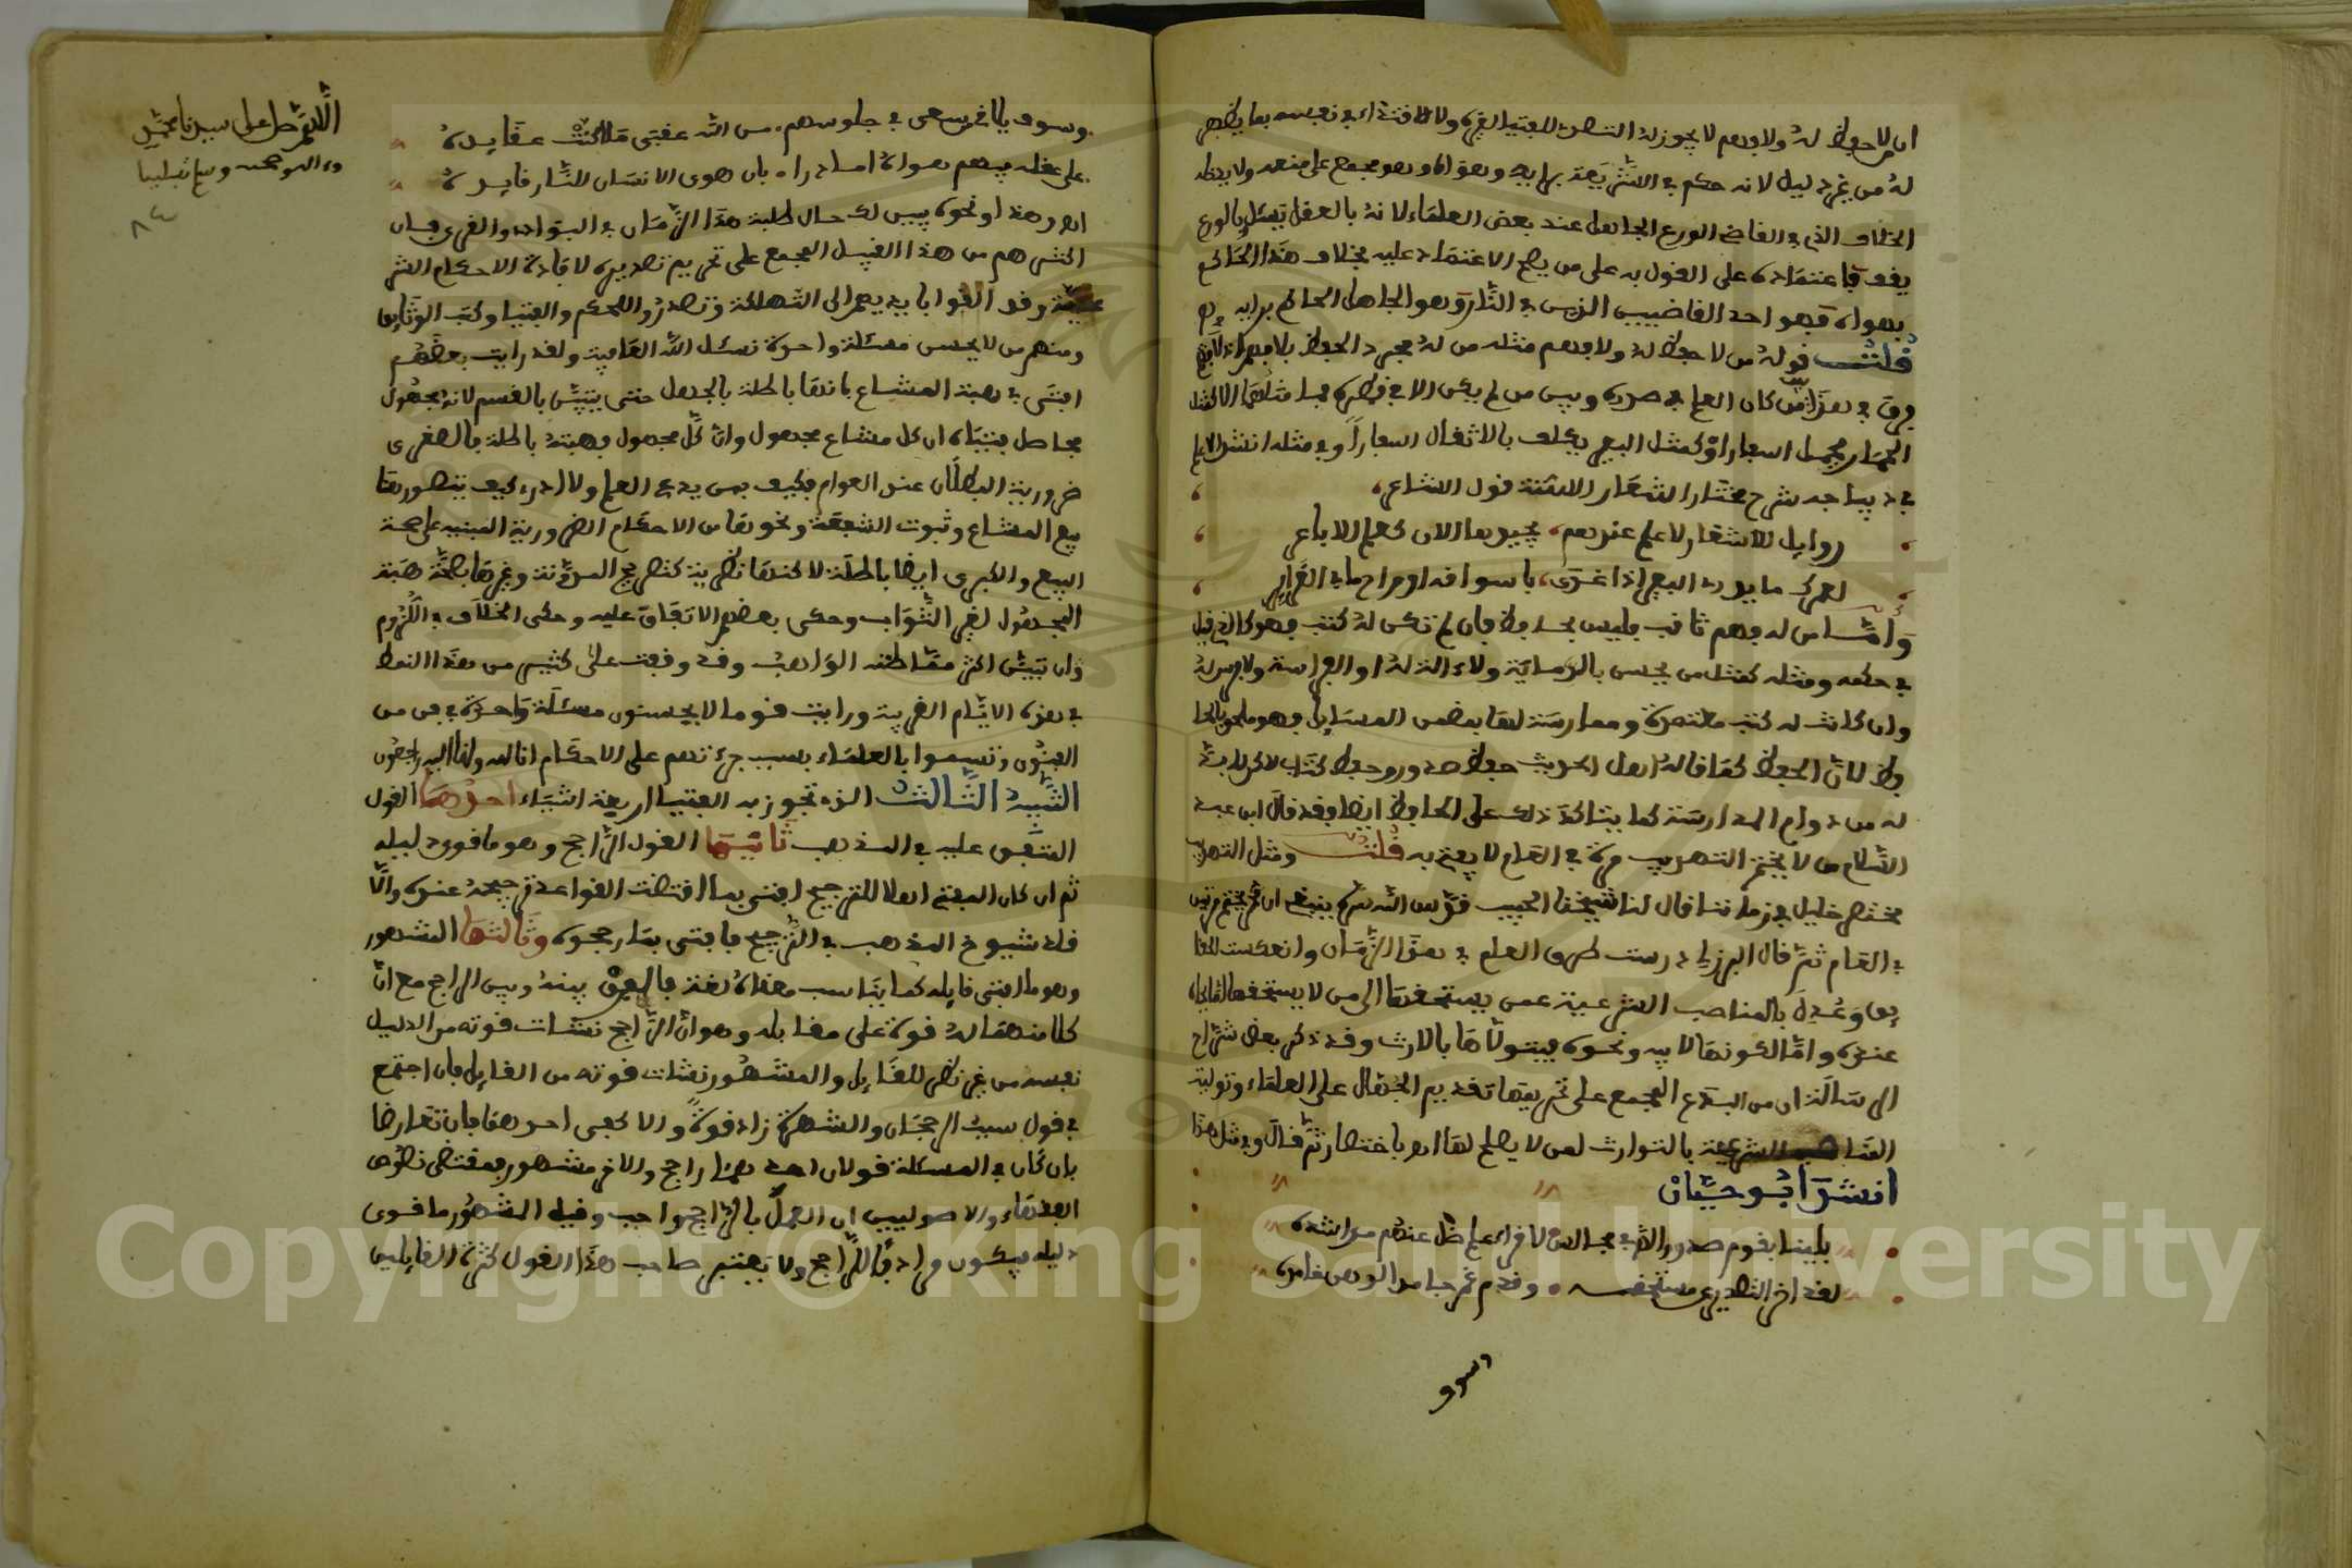 ان من لا حفظ له ولا فهم لا يجوز له التصدى للفتيا لغيره ولا للاقتداء في نفسه بما يظهر
له من غير دليل لانه حكم في الشريعة برايه وهواه وهو مجمع على منعه ولا يدخله
الخلاف الذي في القاضي الورع الجاهل عند بعض العلماء لانه بالعقل يسئل وبالورع
يقف فاعتماده على القول به على من يصح الاعتماد عليه بخلاف هذا الحاكم
بهواه فهو احد القاضيين الذين في النار وهو الجاهل الحاكم برايه
قلت قوله من لا حفظ له ولا فهم مثله من له مجرد الحفظ بلا فهم اذ لا
فرق في هذا بين من كان العلم في صدره وبين من لم يكن الا في قطره فما مثلهما الا كمثل
الحمار يحمل اسفارا او كمثل البعير يكلف بالاثقال اسفارا وفي مثله انشد الاعلم
في ديباجة شرح مختار اشعار الستة قول الشاعر
زوامل للاشعار لا علم عندهم بجيدها الا كعلم الاباعر
لعمرك ما يدرى البعير اذا غدى باسواقه او راح ما في الغراير
واما من له فهم ثاقب وليس بحافظ فان لم تكن له كتب فهو كالذي قبله
في حكمه ومثله كمثل من يحسن بالرماية ولا ءالة له او الفراسة ولا فرس له
وان كانت له كتب معتمدة وممارسة لها بعض المسايل فهو ملحق بالحا
فظ لان الحفظ كما قاله اهل الحديث حفظ صدر وحفظ كتاب لاكن لابد
له من دوام المدارسة كما يتاكد ذلك على الحافظ ايضا وقد قال ابن عبد
السلام من لا يختم التهذيب مرة في العام لا يفتى به قلت ومثل التهذيب
مختصر خليل في زماننا قال لنا شيخنا الحبيب قدس الله سره ينبغي ان يختم مرتين
في العام ثم قال البرزلي درست طرق العلم في هذا الزمان وانعكست الحقا
يق وعدل بالمناصب الشرعية عمن يستحقها الى من لا يستحقها
عنده واما لكونها لابيه ونحوه فيتولاها بالارث وقد ذكر بعض شراح
الرسالة ان من البدع المجمع على تحريمها تقديم الجهال على العلماء وتولية
المناصب الشرعية بالتوارث لمن لا يصلح لها اه باختصار ثم قال وفي مثل هذا
انشد ابو حيان
بلينا بقوم صدروا في مجالس لاقراء علم ضل عنهم مراشده
لقد اخر التصدير عن مستحقه وقدم غمر جامد الذهن خامده
وسوف
اللهم صل على سيدنا محمد
وءاله وصحبه وسلم تسليما
٨٤
وسوف يلاقي من سعى في جلوسهم من الله عقبى ما اكنت عقايده
على عقله فيهم هواه اما درا بان هوى الانسان للنار قايده
اه وهذا ونحوه يبين لك حال طلبة هذا الزمان في البوادى والقرى فان
اكثرهم من هذا القبيل المجمع على تحريم تصديره لافادة الاحكام الشر
عية وقد القوا بايديهم الى التهلكة وتصدروا للحكم والفتيا وكتب الوثايق
ومنهم من لا يحسن مسئلة واحدة نسئل الله العافية ولقد رايت بعضهم
افتى في هبة المشاع بانها باطلة بالجهل حتى يتبين بالقسم لانه مجهول
فحاصل فتياه ان كل مشاع مجهول وان كل مجهول فهبته باطلة فالصغرى
ضرورية البطلان عند العوام فكيف بمن يدعى العلم ولا ادرى كيف يتصور هذا
بيع المشاع وثبوت الشفعة ونحوها من الاحكام الضرورية المبنية على صحة
البيع والكبرى ايضا باطلة لاكنها نظرية كنص المدونة وغيرها بصحة هبة
المجهول لغير الثواب وحكى بعضهم الاتفاق عليه وحكى الخلاف في اللزوم
وان تبين اكثر مما ظنه الواهب وقد وقفت على كثير من هذا النمط
في هذه الايام القريبة ورايت قوما لا يحسنون مسئلة واحدة في فن من
الفنون وتسموا بالعلماء بسبب جرءتهم على الاحكام انا لله وانا اليه راجعون
التنبيه الثالث الذي تجوز به الفتيا اربعة اشياء احدها القول
المتفق عليه في المذهب ثانيها القول الراجح وهو ما قوى دليله
ثم ان كان المفتي اهلا للترجيح افتى بما اقتضت القواعد ترجيحه عنده والا
قلد شيوخ المذهب في الترجيح فافتى بما رجحوه وثالثها المشهور
وهو ما افتى قايله كما يناسب معناه لغة فالفرق بينه وبين الراجح مع ان
كلا منهما له قوة على مقابله وهو ان الراجح نشات قوته من الدليل
نفسه من غير نظر للقايل والمشهور نشات قوته من القايل فان اجتمع
في قول سبب الرجحان والشهرة زاد قوة والا كفى احدهما فان تعارضا
بان كان في المسئلة قولان احدهما راجح والاخر مشهور فمقتضى نصوص
الفقهاء والاصوليين ان العمل بالراجح واجب وقيل المشهور ما قوى
دليله فيكون مرادفا للراجح ولا يعتبر صاحب هذا القول كثرة القايلين
Copyright © King Saud University